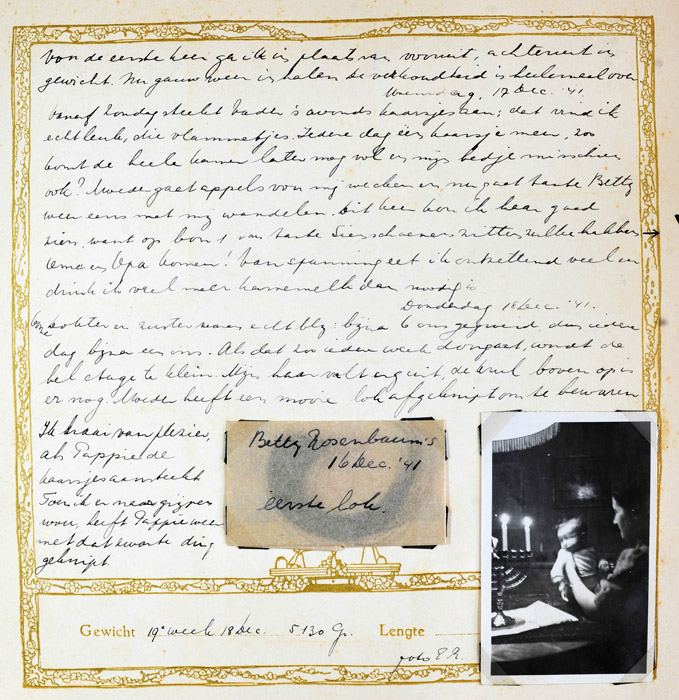 Voor de eerste keer ga ik in plaats van vooruit, achteruit in
gewicht. Nu gauw weer inhalen. De verkoudheid is heelemaal over.
Woensdag, 17 Dec. '41.
Vanaf Zondag steekt Vader 's avonds kaarsjes aan; dat vind ik
echt leuk, die vlammetjes. Iedere dag één kaarsje meer, zoo
komt de heele kamer later nog vol en mijn bedje misschien
ook? Moeder gaat appels voor mij wecken en nu gaat tante Betty
weer eens met mij wandelen. Dit keer kon ik haar goed
zien, want op bon 1 van tante schoenen zitten zulke hakken →
Oma en Opa komen! Van spanning eet ik ontzettend veel en
drink ik veel meer karnemelk dan noodig is
Donderdag 18 Dec. '41.
dokter en zuster waren echt blij: bijna 6 ons gegroeid, dus iedere
dag bijna een ons. Als dat zoo iedere week doorgaat, wordt de
bel etage te klein. Mijn haar valt erg uit, de krul boven op is
er nog. Moeder heeft een mooie lok afgeknipt om te bewaren
Ik kraai van plezier,
als Pappie de
kaarsjes aansteekt
Toen ik er naar grijpen
wou, heeft Pappie weer
met dat zwarte ding
geknipt.
Betty Rosenbaum's
16 Dec. '41
eerste lok.
Gewicht 19e week 18 Dec. 5.130 Gr. Lengte
foto E.R.